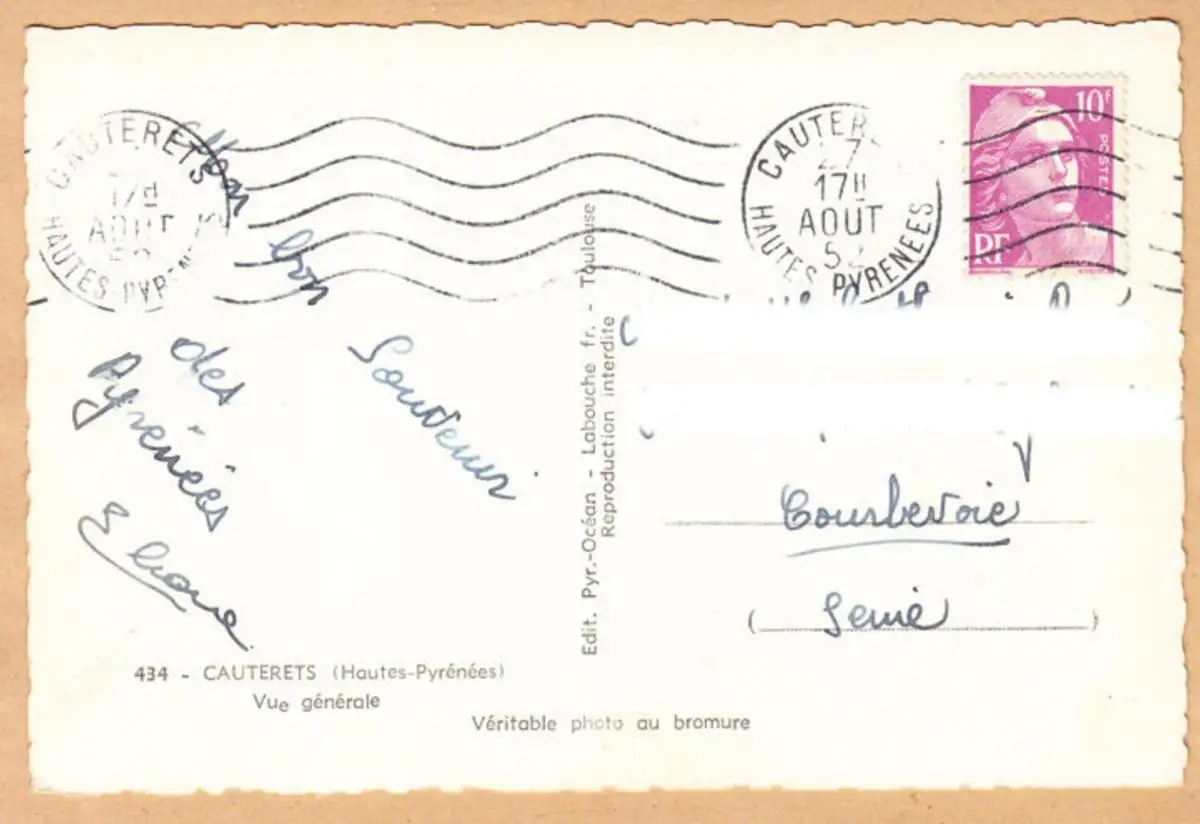 CAUTERETS
17H
AOUT
HAUTES PYRENEES
Mon
bon
Souvenir
des
Pyrénées
Eliane
434 - CAUTERETS (Hautes-Pyrénées)
Vue générale
Véritable photo au bromure
Edit. Pyr.-Océan - Labouche fr. - Toulouse
Reproduction interdite
CAUTER
27
17H
AOUT
52
HAUTES PYRENEES
10F
POSTE
RF
Courbevoie
(Seine)